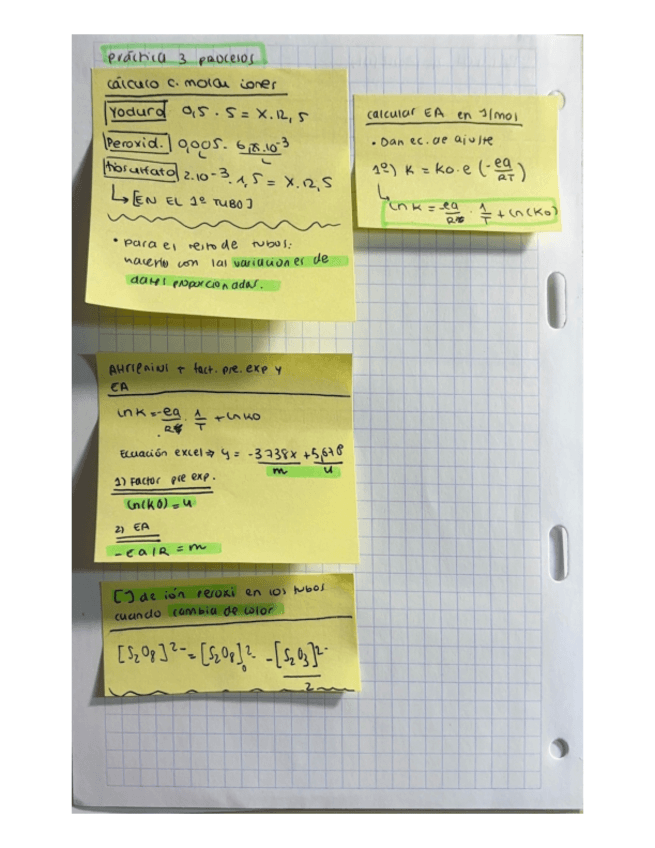 práctica 3 procesos
cálculo c. molar iones
Yoduro 0,5 · 5 = X. 12,5
Peroxid. 0,005.
tiosulfato 2.10-3 . 1,5 = X. 12,5
↳ [EN EL 1º TUBO]
• para el resto de tubos:
hacerlo con las variaciones de
datos proporcionados.
calcular EA en J/mol
• Dan ec. de ajuste
1º) K = Ko · e (-ea/RT)
↳ Ln K = -ea/R · 1/T + Ln(Ko)
+ fact. pre. exp y
EA
Ln K = -ea/R · 1/T + Ln Ko
Ecuación excel ⇒ y = -3738x + 5,678
m u
1) Factor pre exp.
Ln(KO) = u
2) EA
- ea/R = m
[] de ión peroxi en los tubos
cuando cambia de color
[S2O8]2- = [S2O8]2-0 - [S2O3]2-/2